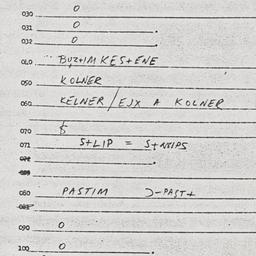 030 0
031 0
032 0
040 BUZ+IM KES+ENE
050 KOLNER
060 KELNER / EJX A KOLNER
070 $
071 S+LIP =
080 PASTIM Ɔ-PAST+
090 0
100 0